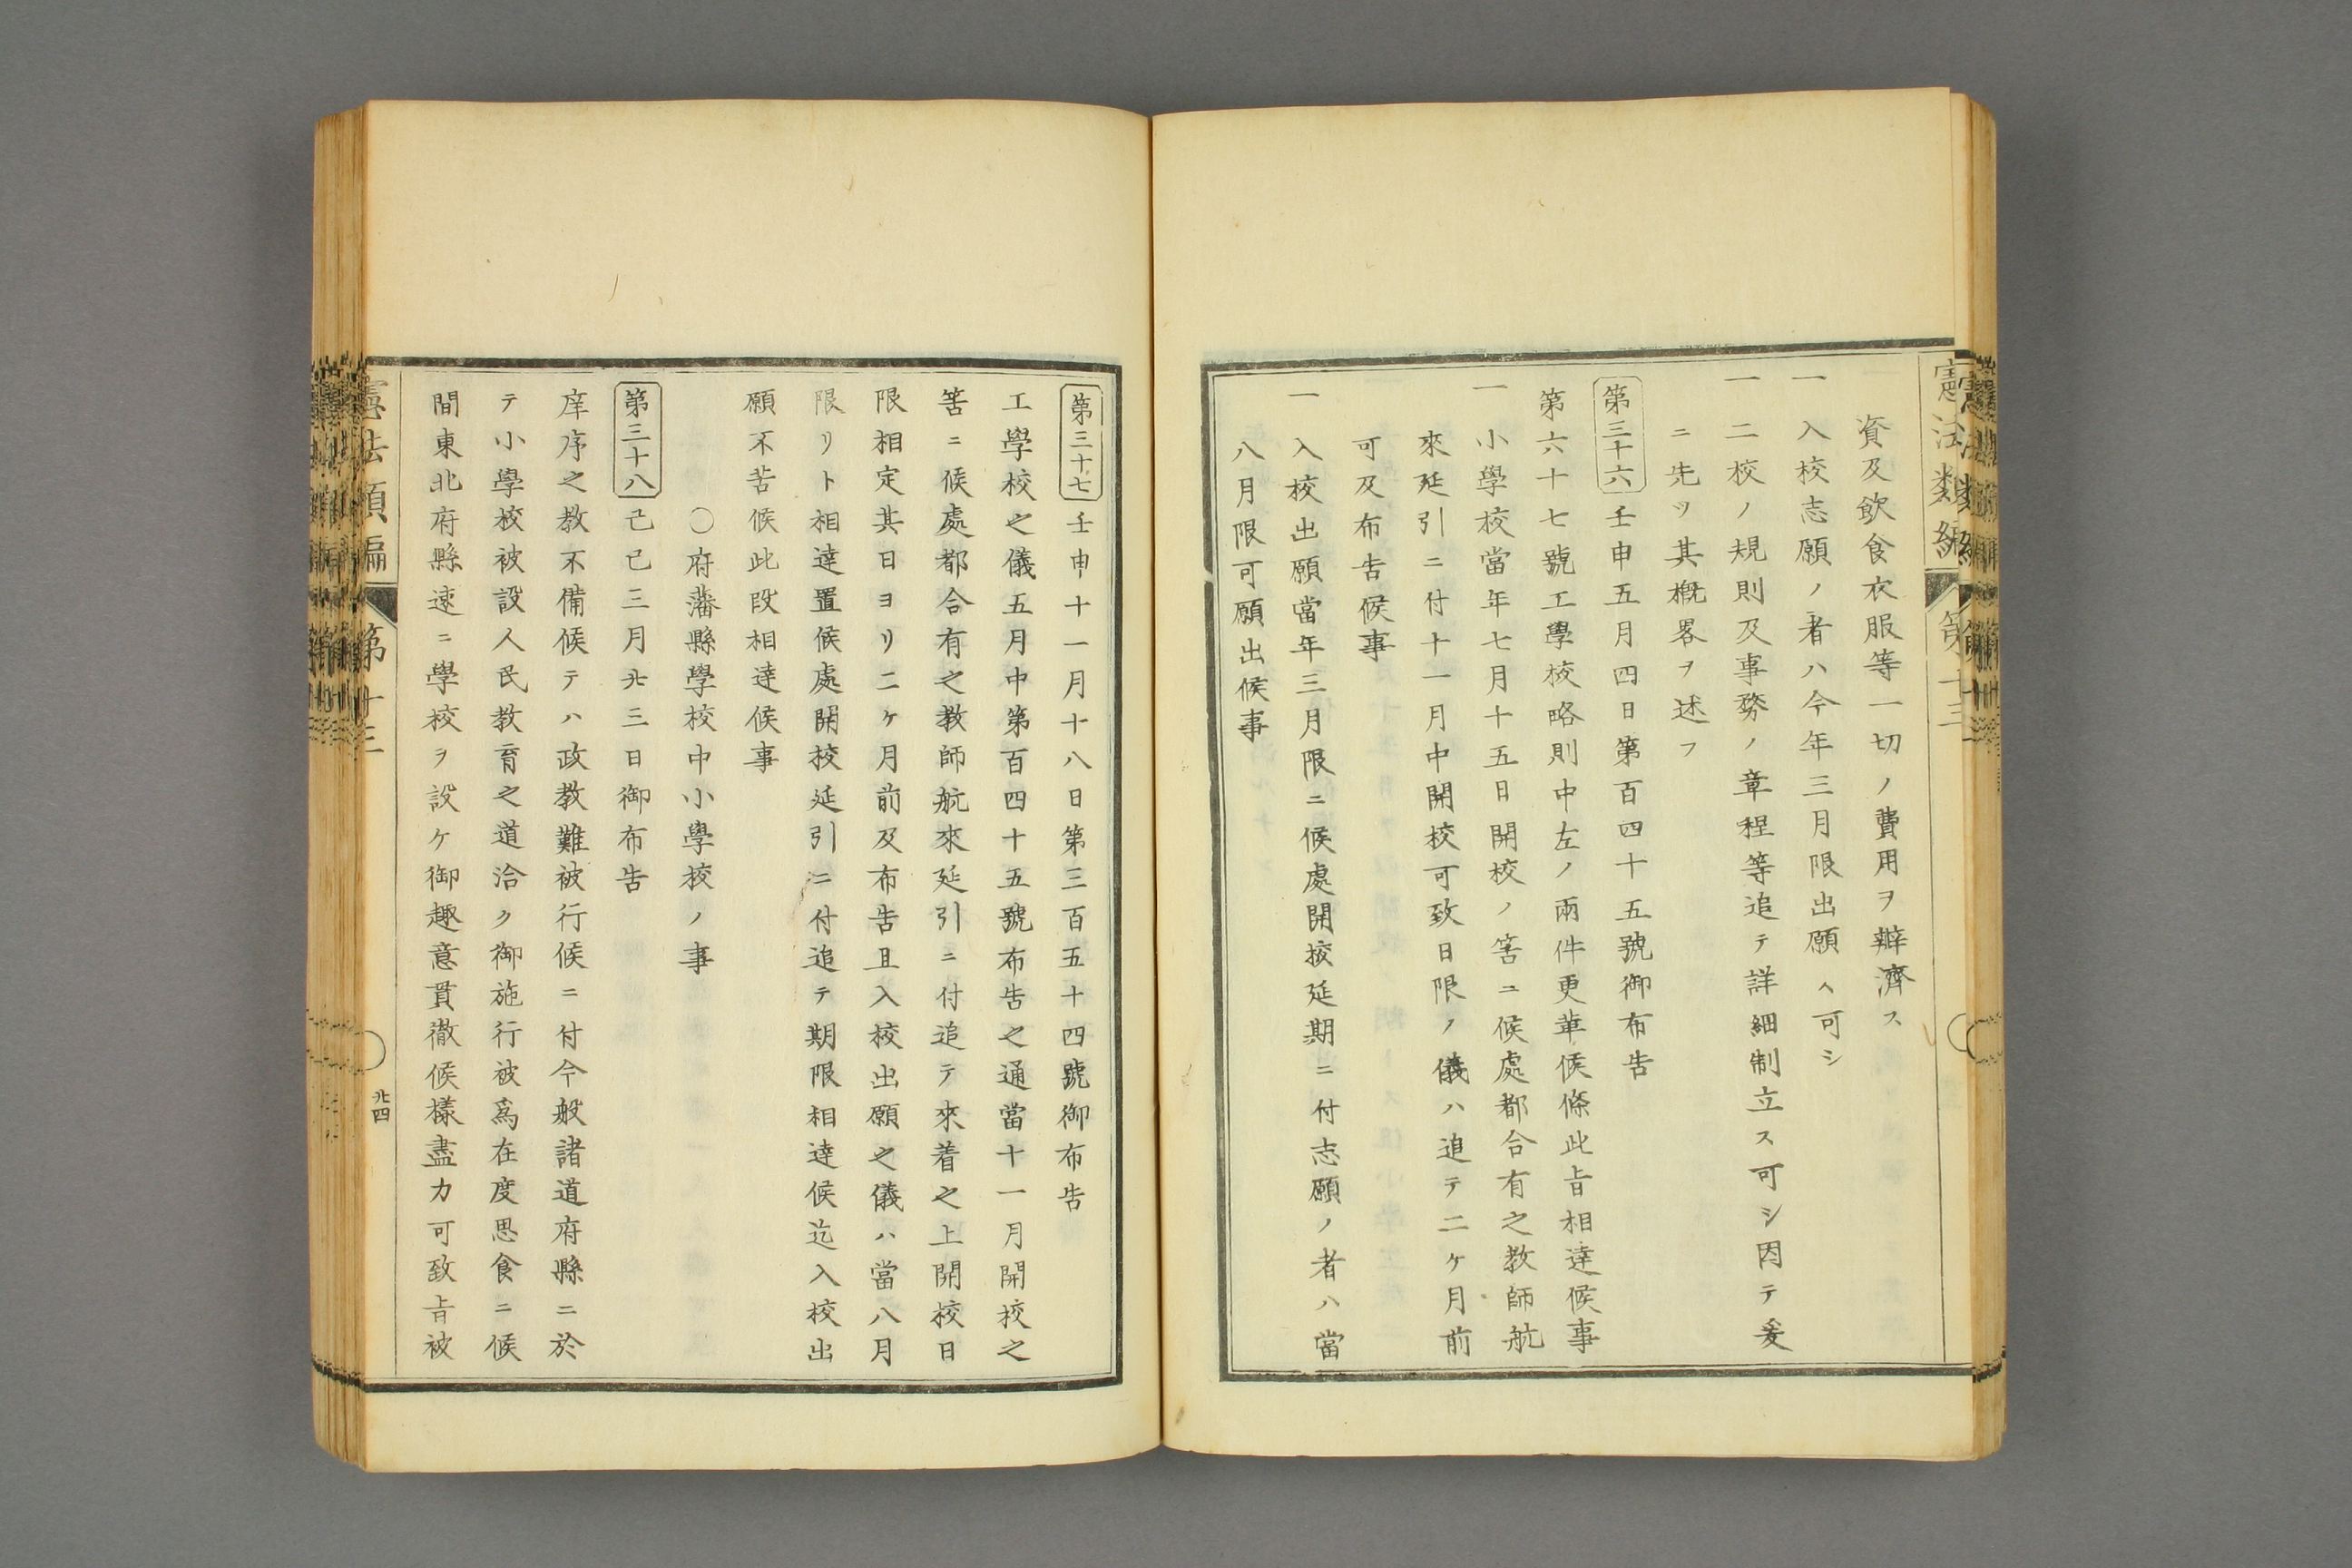 憲法類編
第十三
資及飲食衣服等一切ノ費用ヲ辨濟ス
一入校志願ノ者ハ今年三月限出願ヘ可シ
一二校ノ規則及事務ノ章程等追テ詳細制立ス可シ因テ爰
ニ先ツ其概畧ヲ述フ
第三十六 壬申五月四日第百四十五號御布告
第六十七號工學校略則中左ノ兩件更革候條此旨相達候事
一小學校當年七月十五日開校ノ筈ニ候處都合有之教師航
來延引ニ付十一月中開校可致日限ノ儀ハ追テ二ヶ月前
可及布告候事
一入校出願當年三月限ニ候處開挍延期ニ付志願ノ者ハ當
八月限可願出候事
第三十七 壬申十一月十八日第三百五十四號御布告
工學校之儀五月中第百四十五號布告之通當十一月開校之
筈ニ候處都合有之教師航來延引ニ付追テ來着之上開校日
限相定其日ヨリ二ヶ月前及布告且入校出願之儀ハ當八月
限リト相達置候處開挍延引ニ付追テ期限相達候迄入校出
願不苦候此段相達候事
○府藩縣學校中小學校ノ事
第三十八 己巳三月廿三日御布告
庠序之教不備候テハ政教難被行候ニ付今般諸道府縣ニ於
テ小學校被設人民教育之道洽ク御施行被爲在度思食ニ候
間東北府縣速ニ學校ヲ設ケ御趣意貫徹候樣盡力可致旨被
憲法類編
第十三
廿四